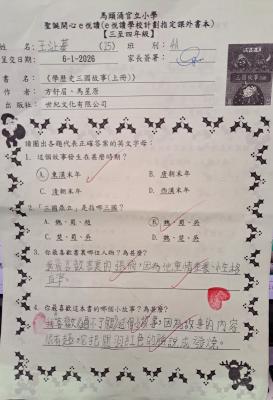 馬頭涌官立小學
聖誕開心e悅讀(e悅讀學校計劃指定課外書本)
【三至四年級】
姓名: (15) 班別: 4A
呈交日期: 6-1-2026 家長簽署:
書名: 《學歷史三國故事(上冊)》
作者: 方舒眉、馬星原
出版社: 世紀文化有限公司
請圈出各題代表正確答案的英文字母:
1. 這個故事發生在甚麼時期?
A. 東漢末年 B. 唐朝末年
C. 清朝末年 D. 西漢末年
2. 「三國鼎立」是指哪三國?
A. 魏、蜀、越 B. 魏、蜀、吳
C. 楚、蜀、吳 D. 魏、楚、吳
3. 你最喜歡書裏的哪位人物?為甚麼?
我最喜歡書裏的張飛,因為他
直率。
4. 你最喜歡這本書的哪個小故事?為甚麼?
我喜歡 這個故事,因為故事的內容